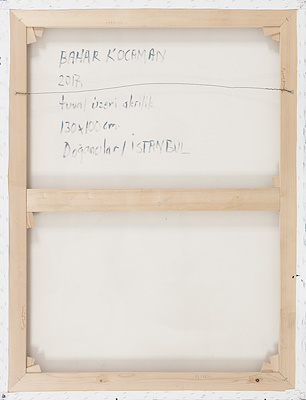 BAHAR KOCAMAN
tuval üzeri akrilik
130x100cm
Doğancılar / İSTANBUL